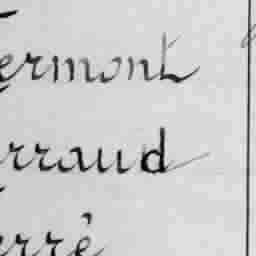 ermont
rraud
erré